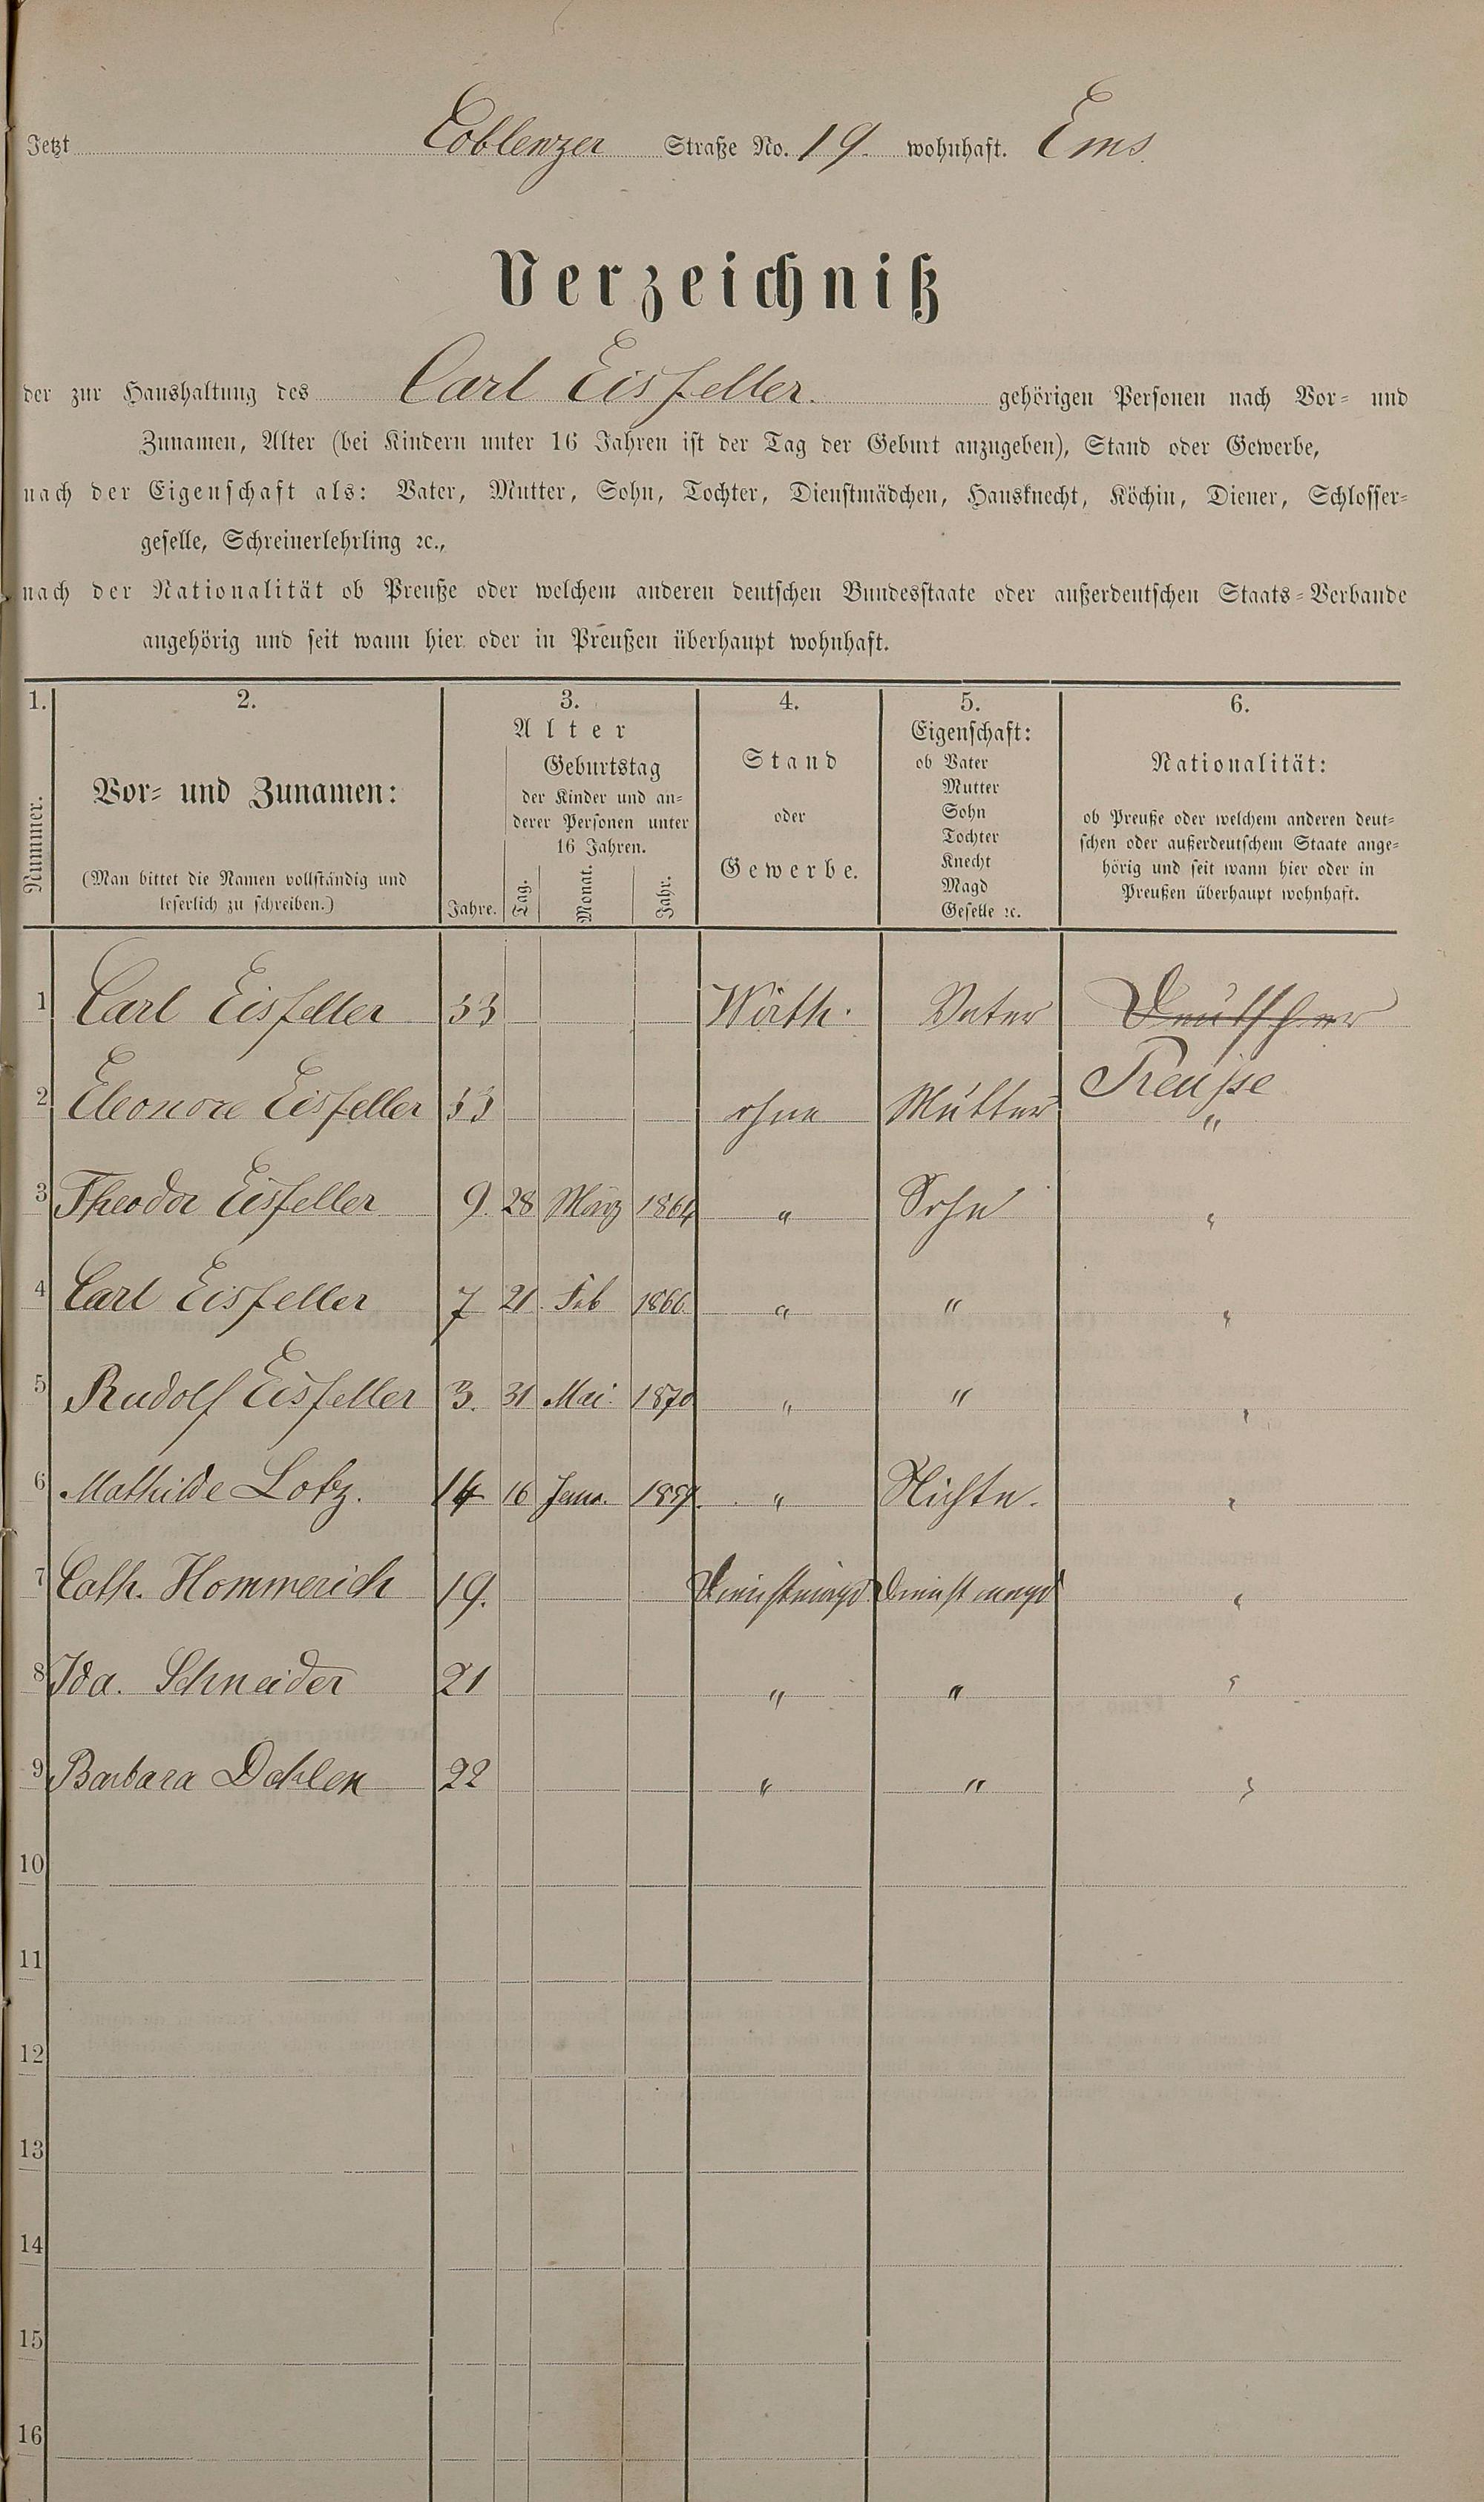 Jetzt Coblenzer Straße No. 19. wohnhaft. Ems.
Verzeichniß
der zur Haushaltung des Carl Eisfeller. gehörigen Personen nach Vor- und
Zunamen, Alter (bei Kindern unter 16 Jahren ist der Tag der Geburt anzugeben), Stand oder Gewerbe,
nach der Eigenschaft als: Vater, Mutter, Sohn, Tochter, Dienstmädchen, Hausknecht, Köchin, Diener, Schlosser-
geselle, Schreinerlehrling ꝛc.,
nach der Nationalität ob Preuße oder welchem anderen deutschen Bundesstaate oder außerdeutschen Staats-Verbande
angehörig und seit wann hier oder in Preußen überhaupt wohnhaft.
1.
Nummer.
2.
Vor- und Zunamen:
(Man bittet die Namen vollständig und
leserlich zu schreiben.)
3.
Alter
Geburtstag
der Kinder und an-
derer Personen unter
16 Jahren.
Jahre. Tag. Monat. Jahr.
4.
Stand
oder
Gewerbe.
5.
Eigenschaft:
ob Vater
Mutter
Sohn
Tochter
Knecht
Magd
Geselle ꝛc.
6.
Nationalität:
ob Preuße oder welchem anderen deut-
schen oder außerdeutschem Staate ange-
hörig und seit wann hier oder in
Preußen überhaupt wohnhaft.
1 Carl Eisfeller 33 Wirth. Vater Deutscher
Preuße
2 Eleonore Eisfeller 33 ohne Mutter "
3 Theodor Eisfeller 9. 28 März 1864 " Sohn "
4 Carl Eisfeller 7 21. Feb 1866. " " "
5 Rudolf Eisfeller 3. 31 Mai. 1870 " " "
6 Mathilde Lotz. 14 16 Janr. 1859. " Nichte. "
7 Cath. Hommerich 19. Dienstmagd Dienstmagd "
8 Ida. Schneider 21 " " "
9 Barbara Dahlen 22 " " "
10
11
12
13
14
15
16